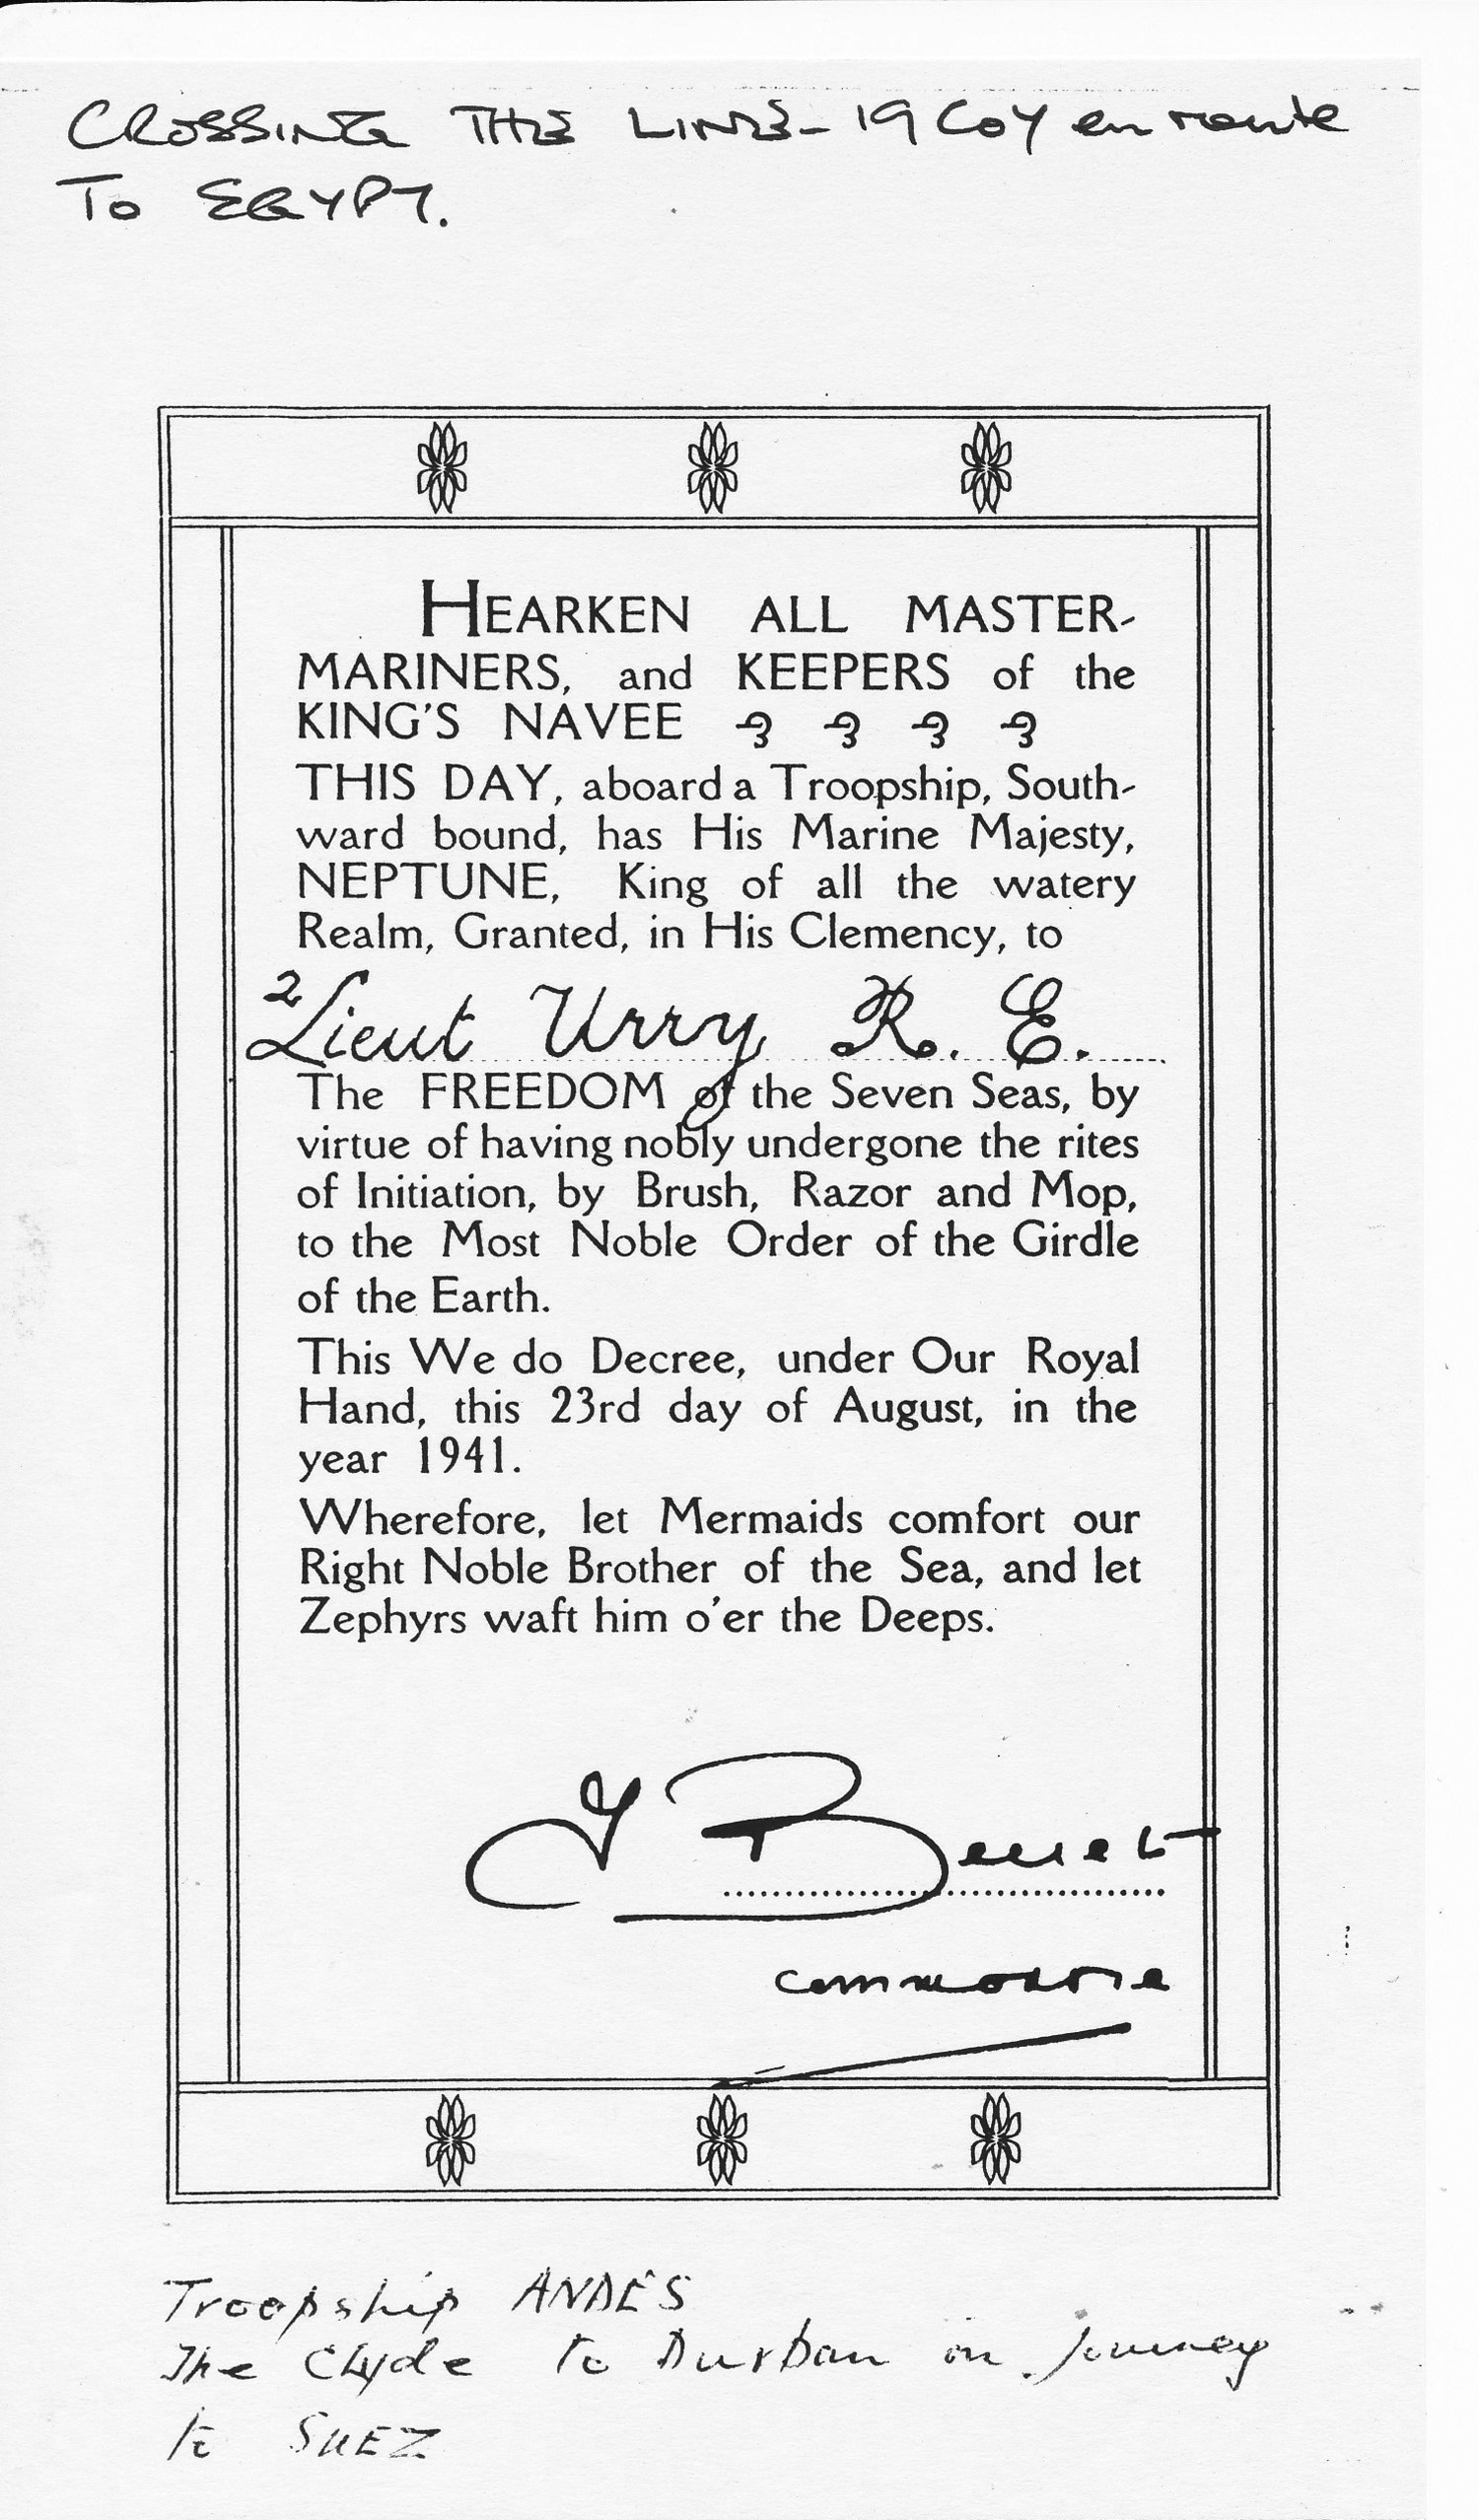 CROSSING THE LINE - 19 Coy en route
To EGYPT.
HEARKEN ALL MASTER-
MARINERS, and KEEPERS of the
KING'S NAVEE
THIS DAY, aboard a Troopship, South-
ward bound, has His Marine Majesty,
NEPTUNE, King of all the watery
Realm, Granted, in His Clemency, to
2 Lieut Urry R. E.
The FREEDOM of the Seven Seas, by
virtue of having nobly undergone the rites
of Initiation, by Brush, Razor and Mop,
to the Most Noble Order of the Girdle
of the Earth.
This We do Decree, under Our Royal
Hand, this 23rd day of August, in the
year 1941.
Wherefore, let Mermaids comfort our
Right Noble Brother of the Sea, and let
Zephyrs waft him o'er the Deeps.
Commodore
Troopship ANDES
The Clyde to Durban on journey
to SUEZ